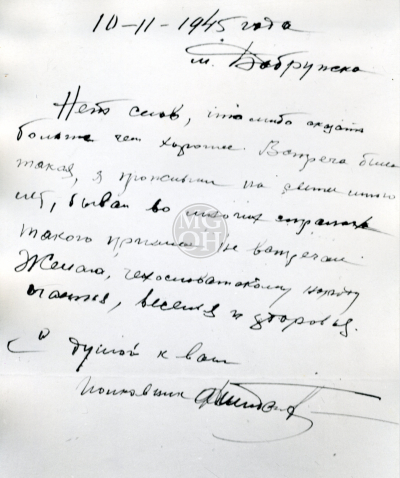 10-11-1945 года
м. Добрушка
Нет слов, что либо сказать
больше чем хорошее. Встреча была
такая, я проживши на свете много
лет, бывал во многих странах
такого приема не встречал
Желаю, чехословатскому народу
счастья, веселья и здоровья.
С душой к вам
Полковник
MG
OH